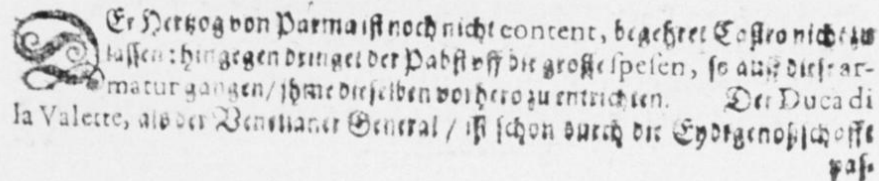 DEr Hertzog von Parma ist noch nicht content, begehret Castro nicht zu
lassen: hingegen dringet der Pabst vff die grosse spesen, so auff diese ar-
matur gangen/ ihme dieselben vorhero zu entrichten. Der Duca di
la Valette, als der Venetianer General / ist schon durch die Eydtgenoßschafft
pas-